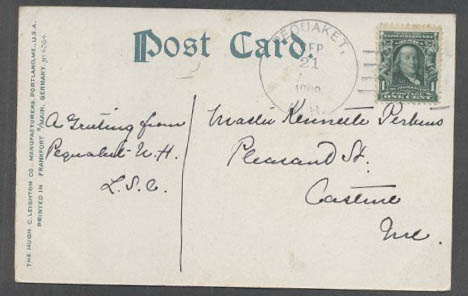 Post Card.
PEQUAKET,
SEP
21
N.H.
1
ONE CENT
THE HUGH C. LEIGHTON CO., MANUFACTURERS, PORTLAND, ME., U.S.A.
PRINTED IN FRANKFORT O/MAIN, GERMANY.
A Greeting from
Pequaket N.H.
L.S.C.
Master Kenneth Perkins
Pleasant St.
Castine
Me.